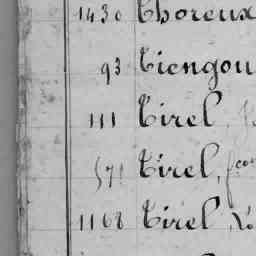 1430 Thoreux
93 Tiengou
111 Tirel,
571 Tirel, fcois
1168 Tirel, Lo